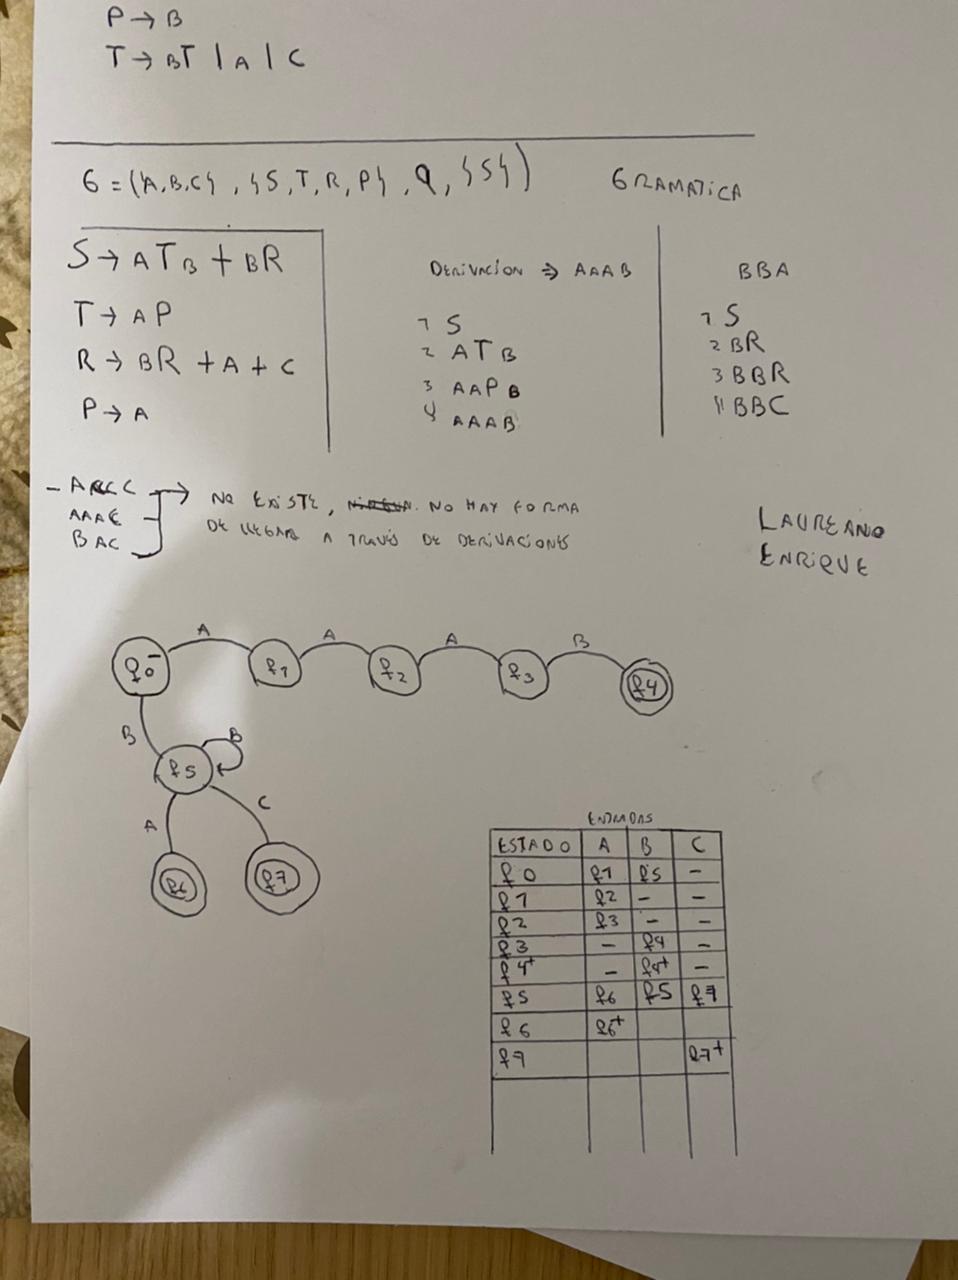 P → B
T → BT | A | C
G = ({A,B,C}, {S,T,R,P}, φ, {S})
GRAMATICA
S → ATB + BR
T → AP
R → BR + A + C
P → A
DERIVACION ⇒ AAAB
1 S
2 ATB
3 AAPB
4 AAAB
BBA
1 S
2 BR
3 BBR
4 BBC
AAAC
BAC
NO EXISTE, NO HAY FORMA
DE LLEGAR A TRAVÉS DE DERIVACIONES
LAUREANO
ENRIQUE
A A A B
q0- q1 q2 q3 q4
B B
q5
A C
q6 q7
ENTRADAS
ESTADO A B C
q0 q1 q5 -
q1 q2 - -
q2 q3 - -
q3 - q4 -
q4+ - q4+ -
q5 q6 q5 q7
q6 q6+
q7 q7+